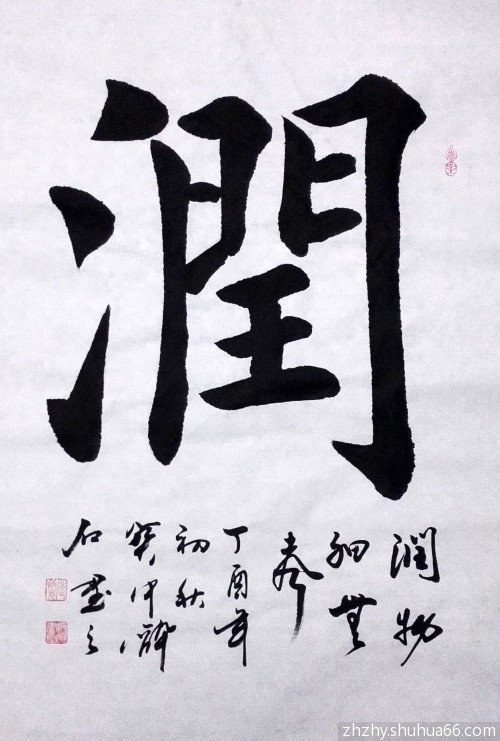 潤
潤物
細無
聲
丁酉年
初秋
石
zhzhy.shuhua66.com